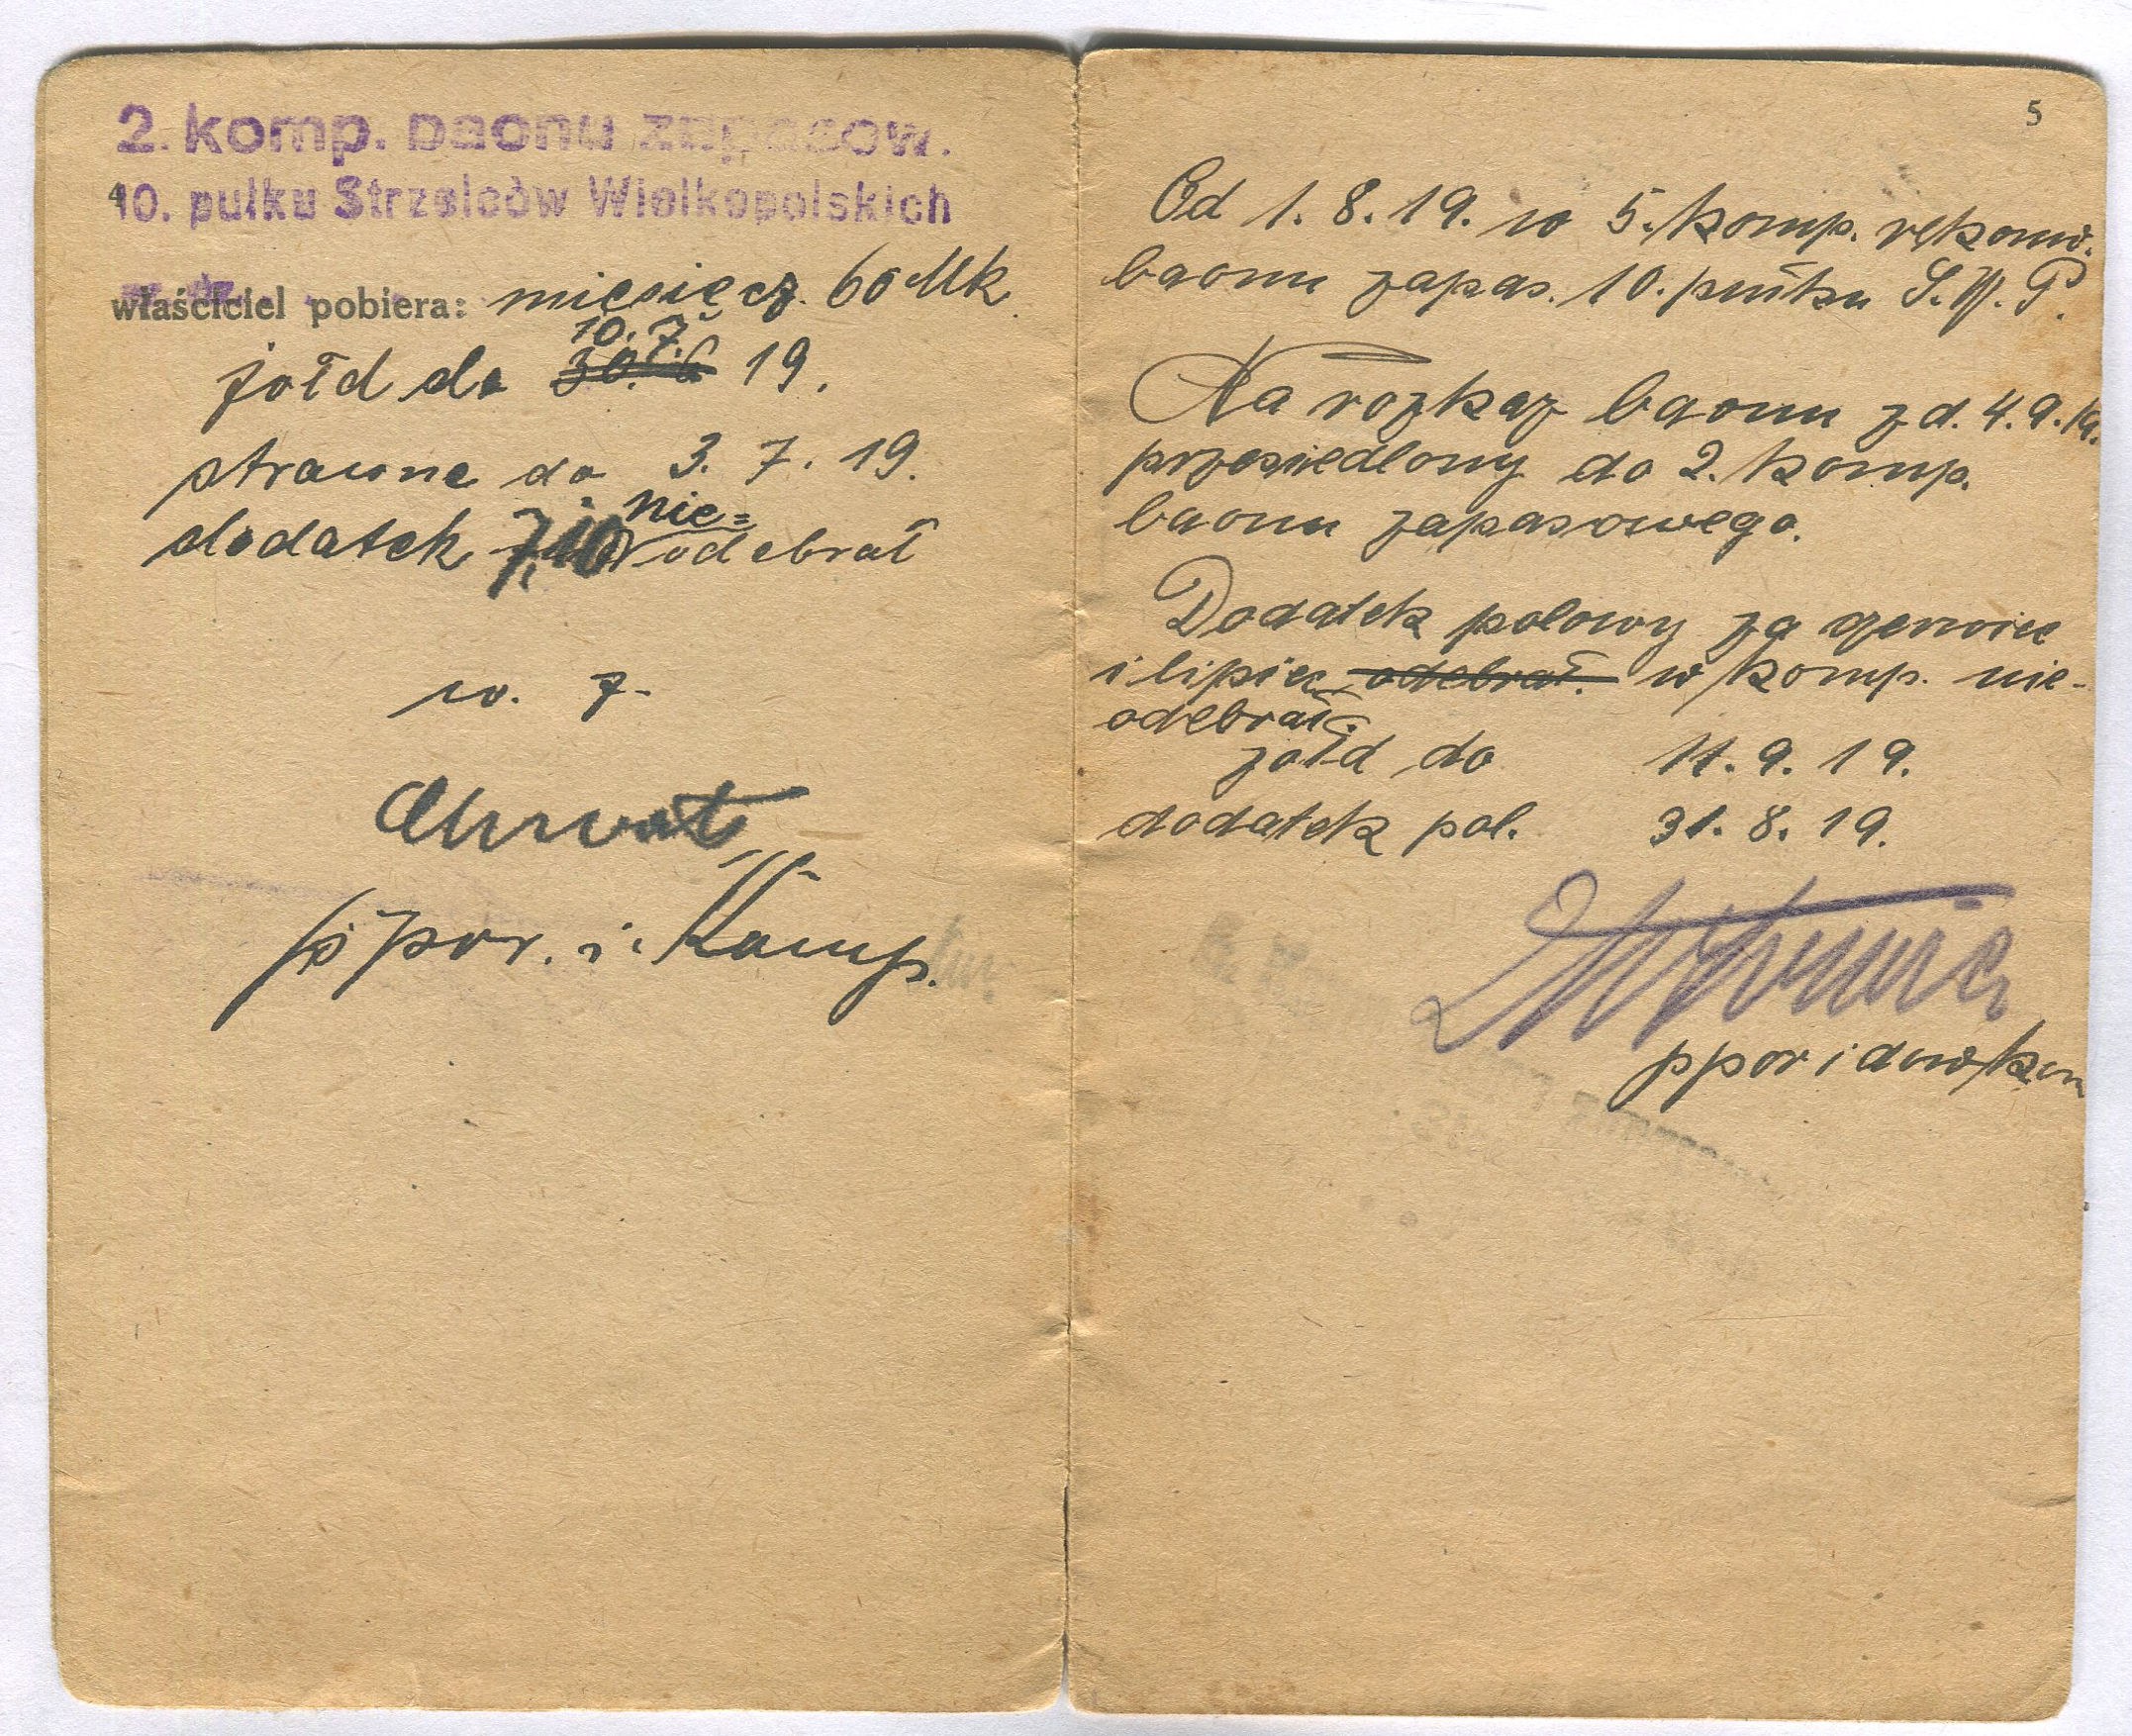 2. komp. baonu zapasow.
4
10. pułku Strzelców Wielkopolskich
właściciel pobiera: miesięcz. 60 Mk.
10. 7.
żołd do 30. 6 19.
strawne do 3. 7. 19.
nie=
dodatek odebrał
w. z.
Chrwat
ppor. i. Komp.
5
Od 1. 8. 19. w 5. komp. rękonw.
baonu zapas. 10. pułku S. W. P.
Na rozkaz baonu z d. 4. 9. 19.
przesiedlony do 2. komp.
baonu zapasowego.
Dodatek polowy za czerwiec
i lipiec odebrał. w komp. nie-
odebrał.
żołd do 11. 9. 19.
dodatek pol. 31. 8. 19.
ppor i dow. kom